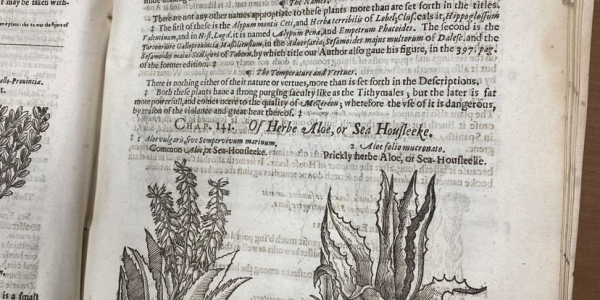 may be taken with-
¶ The Names.
There are not any other names appropriate to these plants more than are set forth in the titles.
‡ The first of these is the Alypum montis Ceti, and Herba terribilis of Lobel; Clus. calls it, Hippoglossum
Valentinum, and in Hist. Lugd. it is named Alypum Penæ, and Empetrum Phacoides. The second is the
Tartonraire Galloprovinciæ Massiliensium, in the Adversaria; Sesamoides majus multorum of Dalesc. and the
Sesamoides minus of Tabern. by which title our Author also gaue his figure, in the 397. pag.
of the former edition. ‡
¶ The Temperature and Vertues.
There is nothing either of their nature or vertues, more than is set forth in the Descriptions.
Both these plants haue a strong purging faculty like as the Tithymales; but the later is far
more powerfull, and comes neere to the quality of Mezereon; wherefore the vse of it is dangerous,
by reason of the violence and great heat thereof. ‡
CHAP. 141. Of Herbe Aloe, or Sea Housleeke.
1 Aloe vulgaris, sive Sempervivum marinum.
Common Aloe, or Sea-Housleeke.
2 Aloe folio mucronato.
Prickly herbe Aloe, or Sea-Housleeke.
is a small